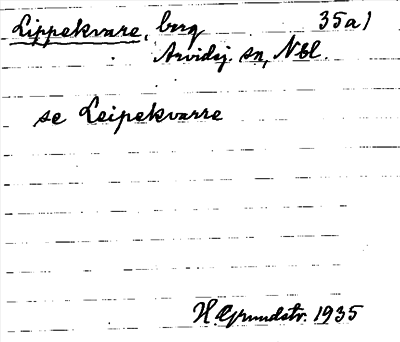 Lippekvare, berg 35a1
Arvidsj. sn, Nbl.
se Leipekvarre
H. Grundstr. 1935